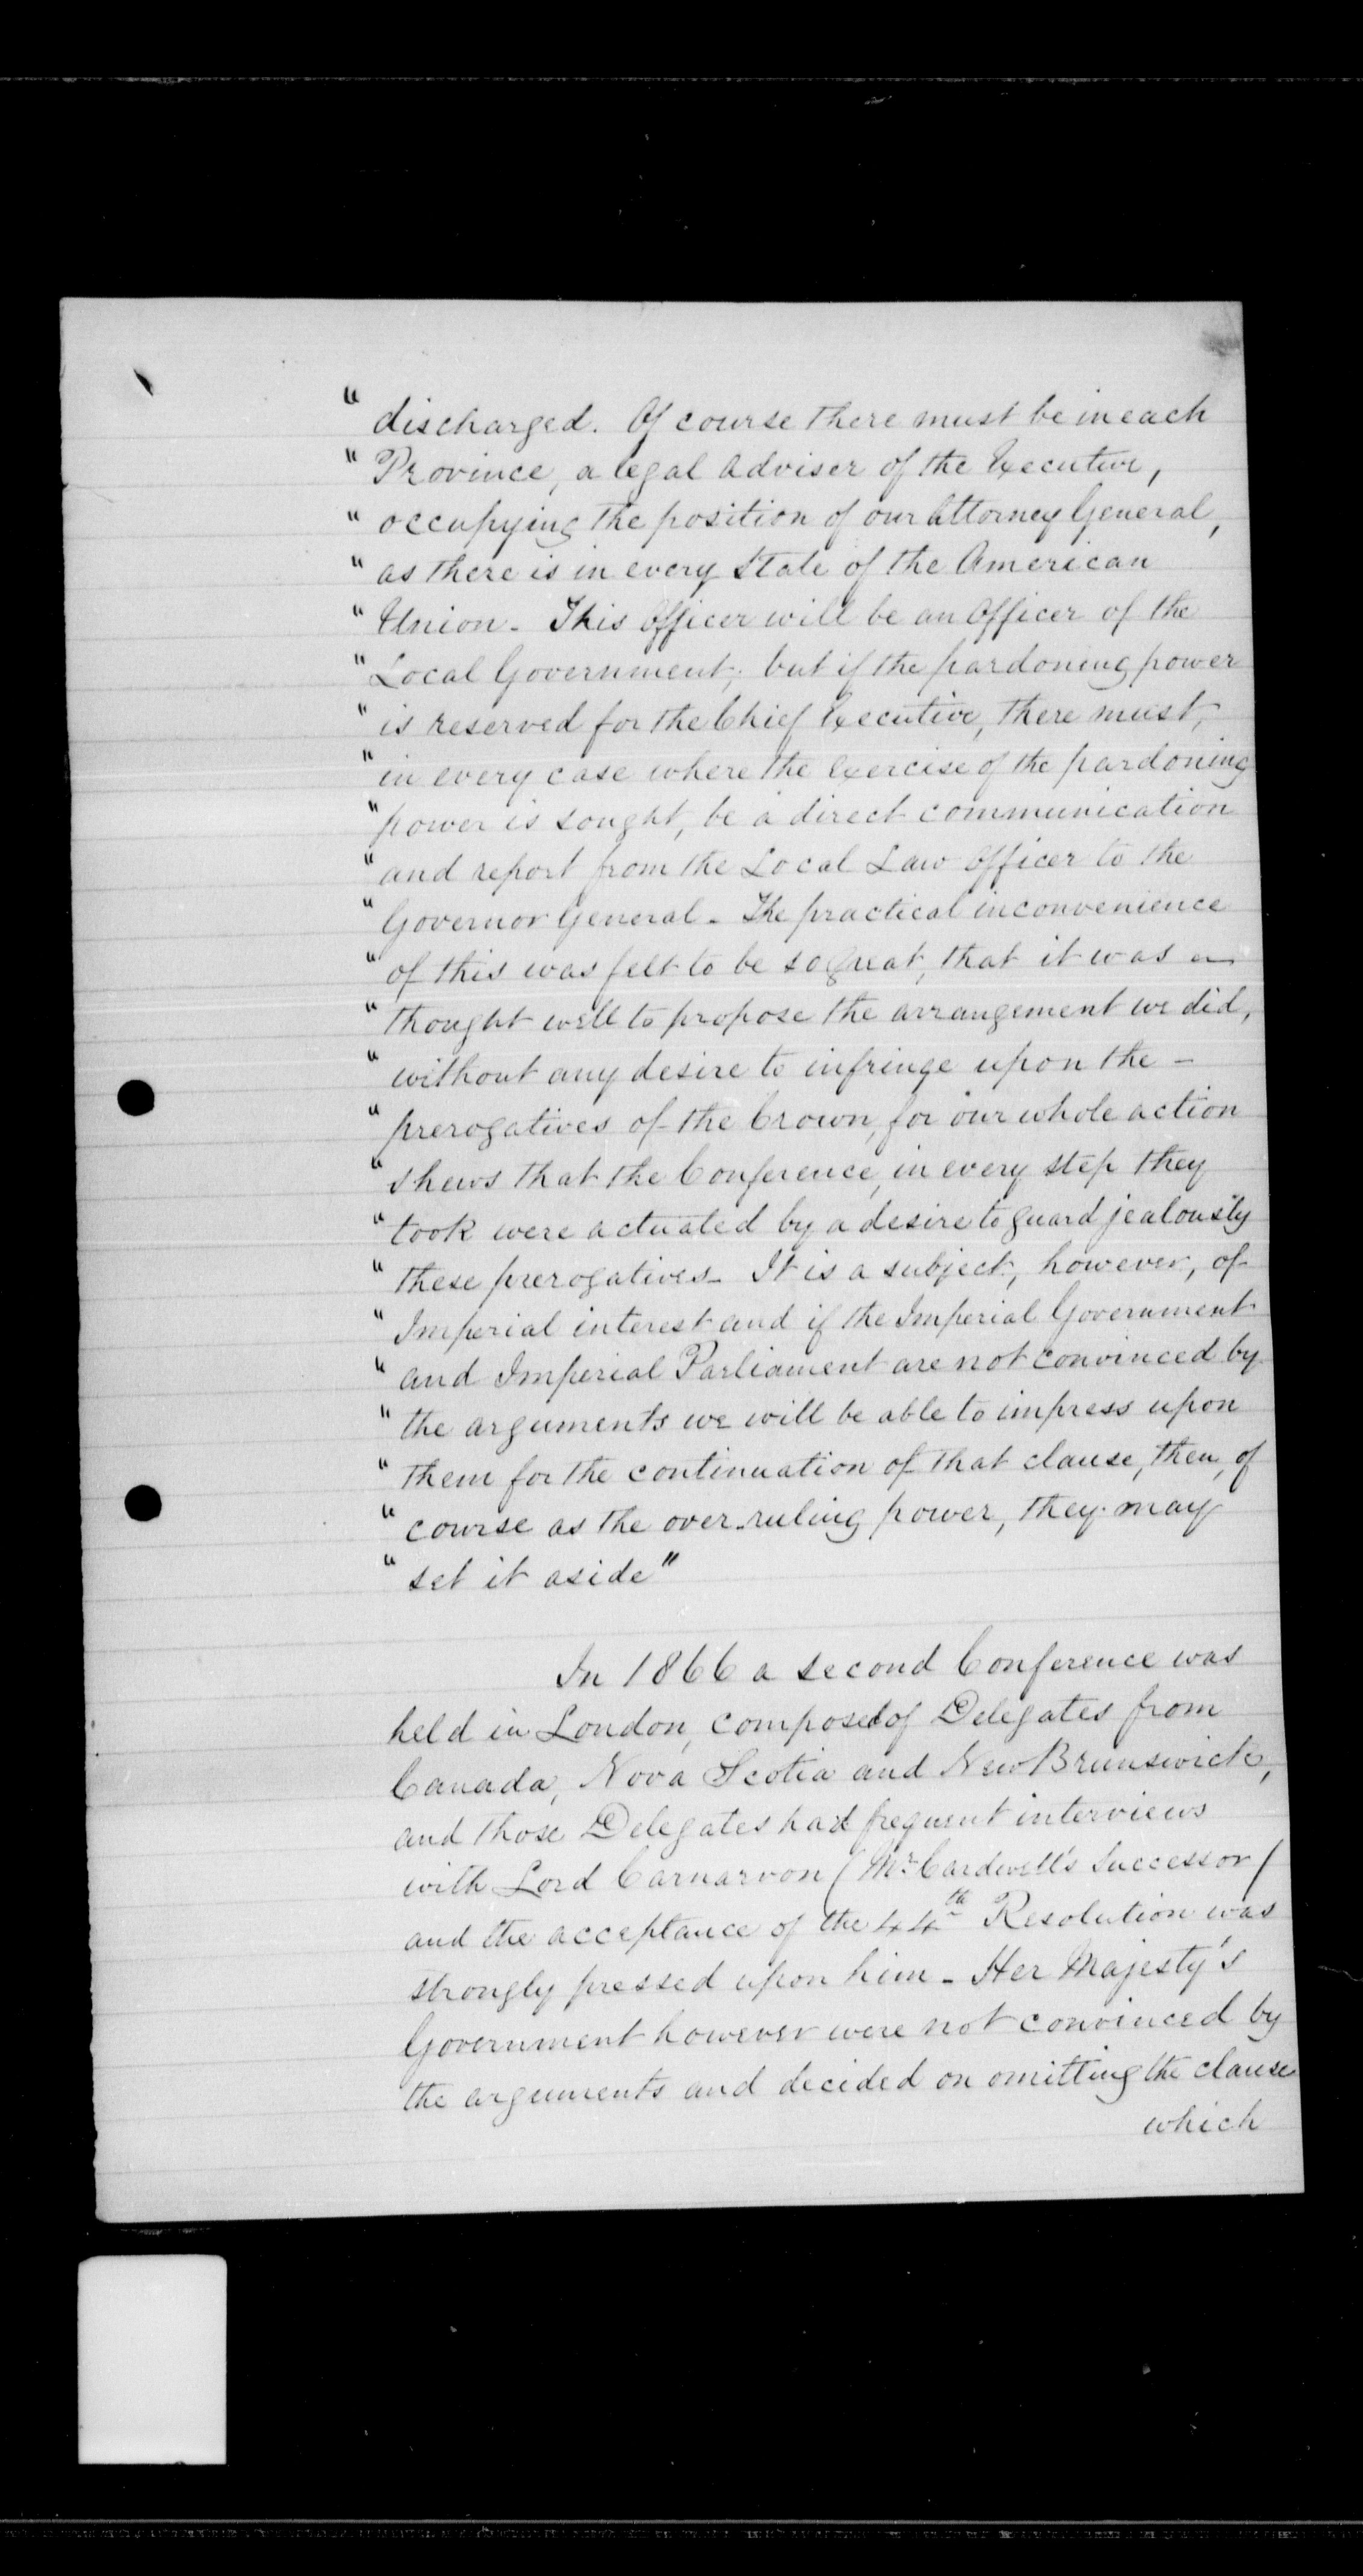 " discharged. Of course there must be in each
" Province, a legal adviser of the Executive,
" occupying the position of our Attorney General,
" as there is in every State of the American
" Union - This Officer will be an Officer of the
" Local Government; but if the pardoning power
" is reserved for the Chief Executive, there must,
" in every case where the exercise of the pardoning
" power is sought, be a direct communication
" and report from the Local Law Officer to the
" Governor General - The practical inconvenience
" of this was felt to be so great, that it was -
" thought well to propose the arrangement we did,
" without any desire to infringe upon the -
" prerogatives of the Crown, for our whole action
" shews that the Conference, in every step they
" took were actuated by a desire to guard jealously
" these prerogatives - It is a subject, however, of
" Imperial interest and if the Imperial Government
" and Imperial Parliament are not convinced by
" the arguments we will be able to impress upon
" them for the continuation of that clause, then, of
" course as the over-ruling power, they may
" set it aside"
In 1866 a second Conference was
held in London, composed of Delegates from
Canada, Nova Scotia and New Brunswick,
and those Delegates had frequent interviews
with Lord Carnarvon (Mr. Cardwell's Successor)
and the acceptance of the 44th Resolution was
strongly pressed upon him - Her Majesty's
Government however were not convinced by
the arguments and decided on omitting the clause
which